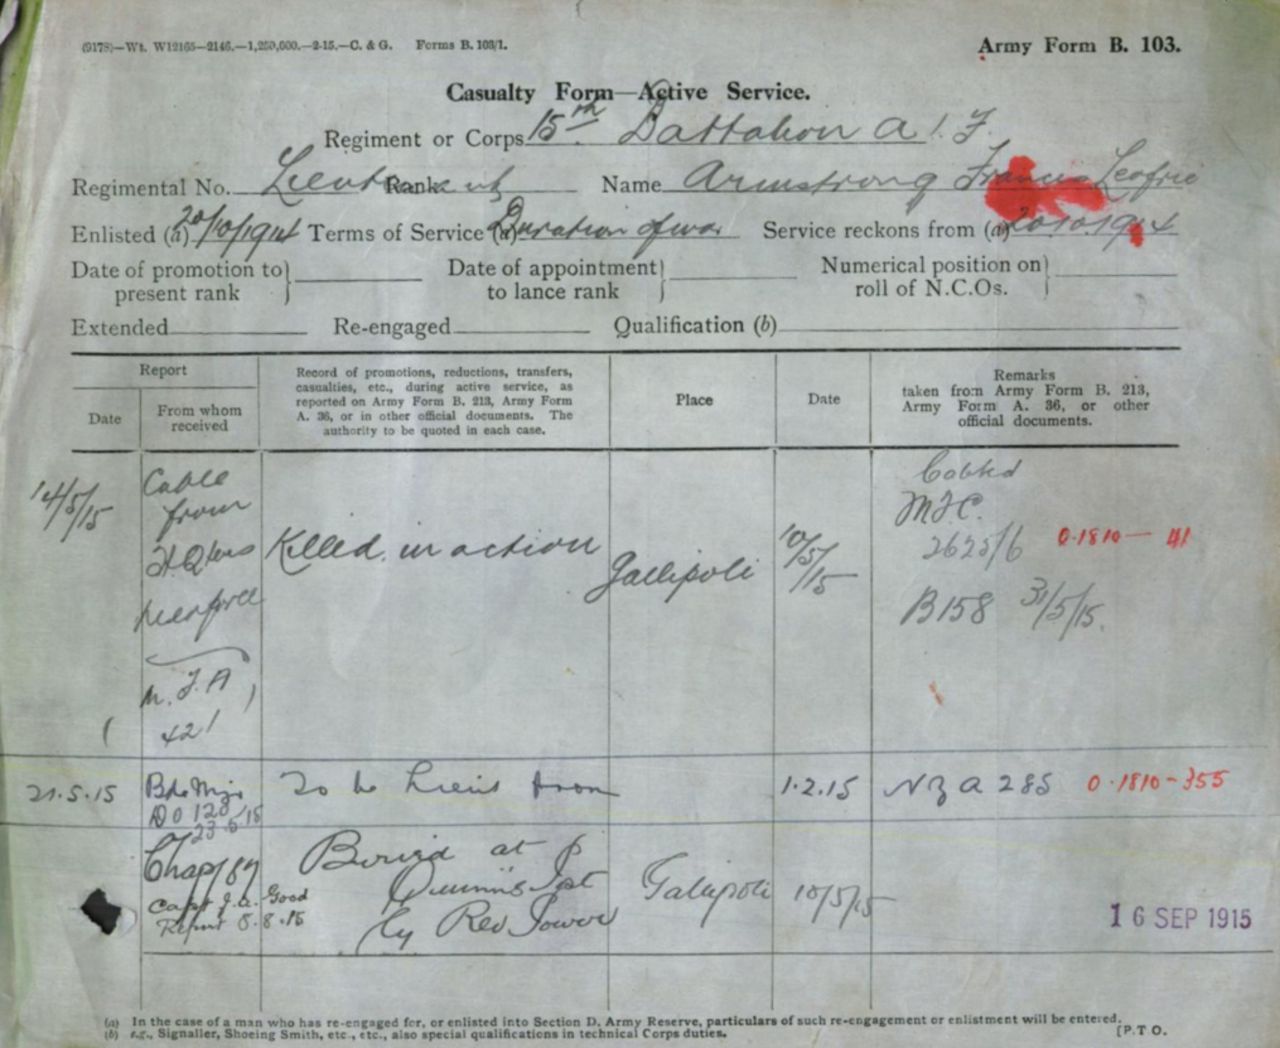 (9178)—Wt. W12165—2146.—1,250,000.—2-15.—C. & G. Forms B. 103/1.
Army Form B. 103.
Casualty Form—Active Service.
Regiment or Corps 15th Battalion A.I.F.
Regimental No. Rank Lieutenant Name Armstrong Francis Leofric
Enlisted (a) 20/10/1914 Terms of Service (a) Duration of war Service reckons from (a) 20.10.1914
Date of promotion to present rank } Date of appointment to lance rank } Numerical position on roll of N.C.Os. }
Extended Re-engaged Qualification (b)
Report
Date
From whom received
Record of promotions, reductions, transfers,
casualties, etc., during active service, as
reported on Army Form B. 213, Army Form
A. 36, or in other official documents. The
authority to be quoted in each case.
Place
Date
Remarks
taken from Army Form B. 213,
Army Form A. 36, or other
official documents.
14/5/15
Cable
from
H.Qrs
M.F.A
421
Killed in action
Gallipoli
10/5/15
Cabled
M.F.C.
2625/6 0.1810— 41
B158 31/5/15.
21.5.15
DO 120
23.5.15
To be Lieut from
1.2.15
NZ A 285 0.1810-355
Chap/89
Capt J.A. Good
Report 8.8.15
Buried at
Quinn's Post
by Rev Power
Gallipoli
10/5/15
16 SEP 1915
(a) In the case of a man who has re-engaged for, or enlisted into Section D. Army Reserve, particulars of such re-engagement or enlistment will be entered.
(b) e.g., Signaller, Shoeing Smith, etc., etc., also special qualifications in technical Corps duties.
[P.T.O.